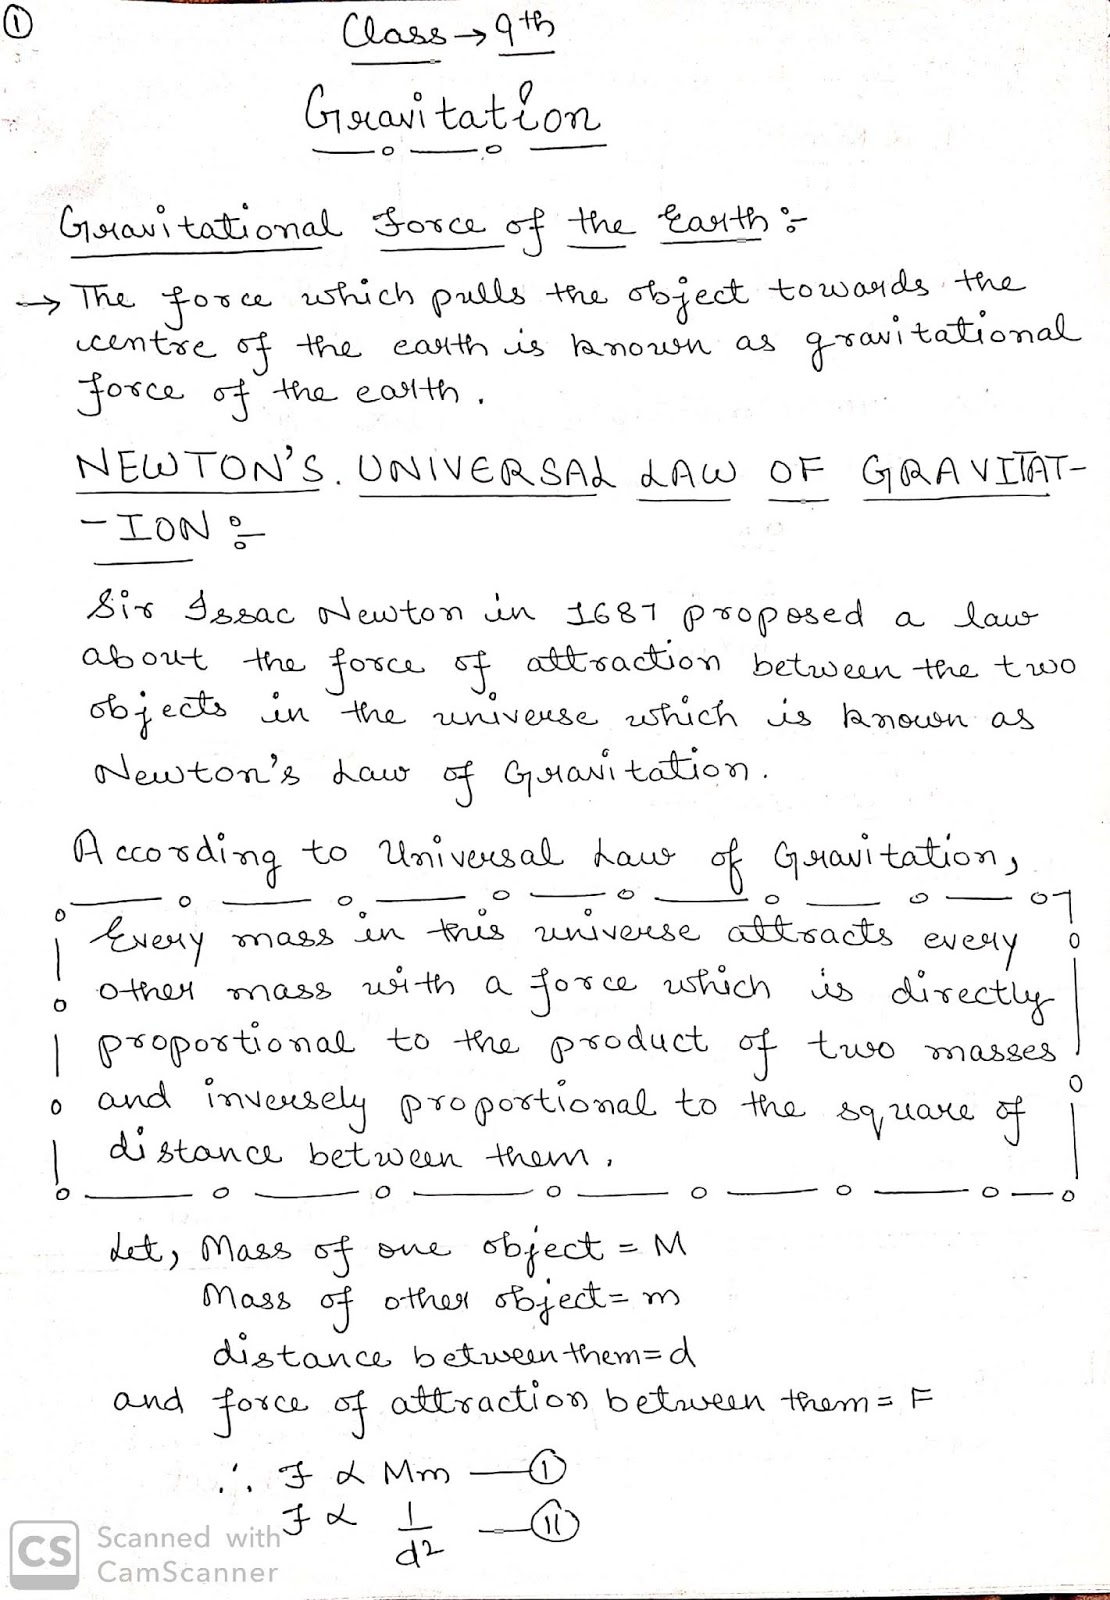 ①
Class → 9th
Gravitation
Gravitational Force of the Earth :-
→ The force which pulls the object towards the
centre of the earth is known as gravitational
force of the earth.
NEWTON'S. UNIVERSAL LAW OF GRAVITAT-
- ION :-
Sir Issac Newton in 1687 proposed a law
about the force of attraction between the two
objects in the universe which is known as
Newton's Law of Gravitation.
According to Universal Law of Gravitation,
Every mass in this universe attracts every
other mass with a force which is directly
proportional to the product of two masses
and inversely proportional to the square of
distance between them.
Let, Mass of one object = M
Mass of other object = m
distance between them = d
and force of attraction between them = F
∴ F ∝ Mm — Ⓘ
F ∝ 1/d² — (II)
CS Scanned with
CamScanner